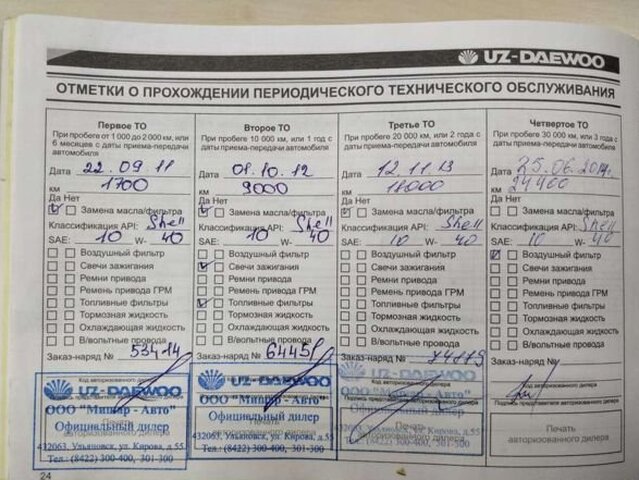 UZ-DAEWOO
ОТМЕТКИ О ПРОХОЖДЕНИИ ПЕРИОДИЧЕСКОГО ТЕХНИЧЕСКОГО ОБСЛУЖИВАНИЯ
Первое ТО
При пробеге от 1 000 до 2 000 км, или
6 месяцев с даты приема-передачи
автомобиля
Дата 22.09.11
км 1700
Да Нет
Замена масла/фильтра
Классификация API: Shell
SAE: 10 W- 40
Воздушный фильтр
Свечи зажигания
Ремни привода
Ремень привода ГРМ
Топливные фильтры
Тормозная жидкость
Охлаждающая жидкость
В/вольтные провода
Заказ-наряд № 53414
UZ-DAEWOO
ООО "Мицар - Авто"
Официальный дилер
432063, Ульяновск, ул. Кирова, д.55
Тел.: (8422) 300-400, 301-300
24
Второе ТО
При пробеге 10 000 км, или 1 год с
даты приема-передачи автомобиля
Дата 08.10.12
км 9000
Да Нет
Замена масла/фильтра
Классификация API: Shell
SAE: 10 W- 40
Воздушный фильтр
Свечи зажигания
Ремни привода
Ремень привода ГРМ
Топливные фильтры
Тормозная жидкость
Охлаждающая жидкость
В/вольтные провода
Заказ-наряд №
UZ-DAEWOO
ООО "Мицар - Авто"
Официальный дилер
Печать
432063, Ульяновск, ул. Кирова, д.55
Тел.: (8422) 300-400, 301-300
Третье ТО
При пробеге 20 000 км, или 2 года с
даты приема-передачи автомобиля
Дата 12.11.13
км 18000
Да Нет
Замена масла/фильтра
Классификация API: Shell
SAE: 10 W- 40
Воздушный фильтр
Свечи зажигания
Ремни привода
Ремень привода ГРМ
Топливные фильтры
Тормозная жидкость
Охлаждающая жидкость
В/вольтные провода
Заказ-наряд №
UZ-DAEWOO
Печать
Четвертое ТО
При пробеге 30 000 км, или 3 года с
даты приема-передачи автомобиля
Дата 25.06.2014г.
км 24400
Да Нет
Замена масла/фильтра
Классификация API: Shell
SAE: 10 W- 40
Воздушный фильтр
Свечи зажигания
Ремни привода
Ремень привода ГРМ
Топливные фильтры
Тормозная жидкость
Охлаждающая жидкость
В/вольтные провода
Заказ-наряд №
Код авторизованного дилера
Подпись представителя авторизованного дилера
Печать
авторизованного дилера